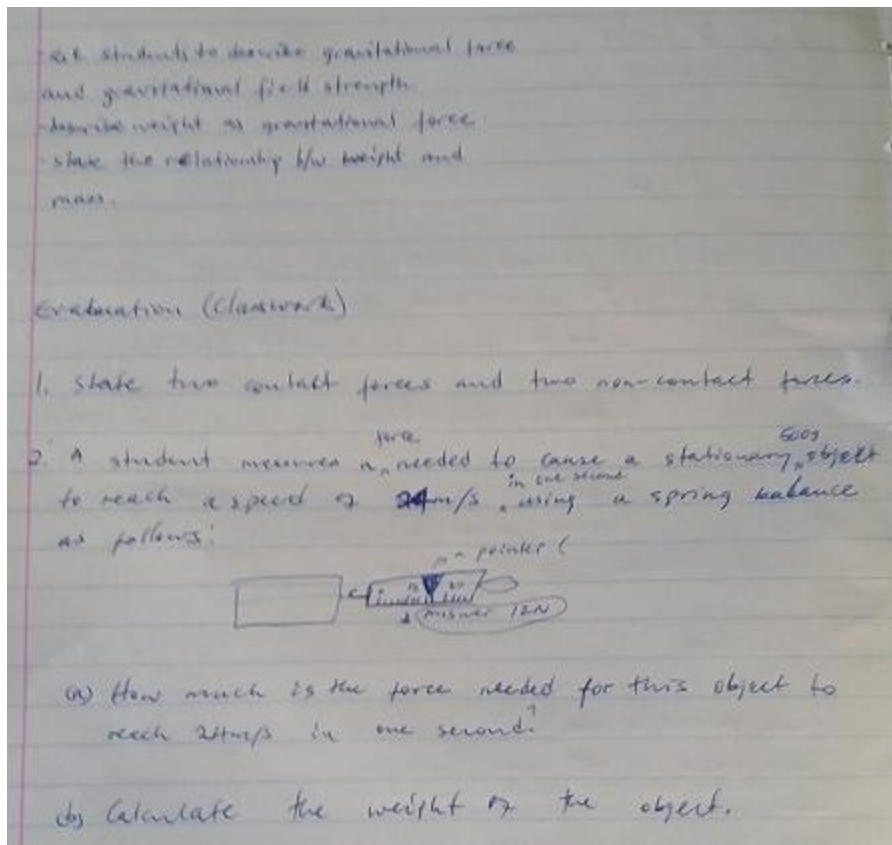 ask students to describe gravitational force
and gravitational field strength
describe weight as gravitational force
state the relationship b/w weight and
mass.
Evaluation (Classwork)
1. State two contact forces and two non-contact forces.
2. A student measures a force needed to cause a stationary 500g object
to reach a speed of 24m/s in one second using a spring balance
as follows:
pointer (
answer 12N
(a) How much is the force needed for this object to
reach 24m/s in one second?
(b) Calculate the weight of the object.